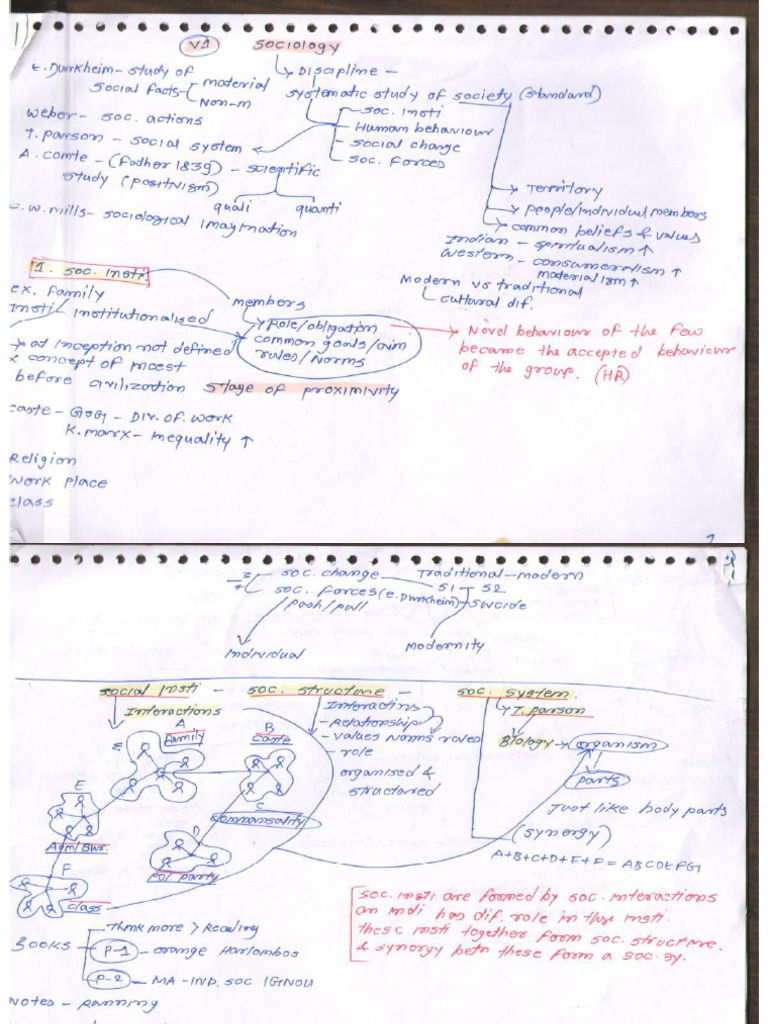 V1 Sociology
E. Durkheim - study of social facts - material
Non-m
Discipline -
systematic study of society (standard)
soc. insti
Human behaviour
social change
soc. forces
Weber - soc. actions
T. parson - social system
A. comte - (Father 1839) - scientific
study (positivism)
quali quanti
C.W. mills - sociological imagination
Territory
people/individual members
common beliefs & values
Indian - spiritualism ↑
Western - consumeralism ↑
materialism ↑
Modern vs traditional
cultural dif.
1. soc. insti
ex. family
insti - institutionalised
members
Role/obligation
common goals/aim
rules/Norms
Novel behaviour of the few
became the accepted behaviour
of the group. (HR)
at inception not defined
concept of incest
before civilization stage of proximivity
caste - Div. of. work
K. marx - inequality ↑
Religion
Work place
class
1
soc. change Traditional - modern
soc. forces (e. Durrkheim) S1 S2
push/pull suicide
individual modernity
social insti - soc. structure - soc. system.
Interactions
A
Family
B
Caste
C
commansality
D
pol. party
E
Adm/Bur.
F
class
Interactins
- Relationship
- values Norms
- role
organised &
structured
T. parson
Biology → organism
parts
Just like body parts
(synergy)
A+B+C+D+E+F = ABCDEFG
soc. insti are formed by soc. interactions
an indi has dif. role in these insti.
these insti together form soc. structure.
& synergy betn these form a soc. sy.
Books
- Think more > Reading
P-1 - orange Harlombos
P-2 - MA - IND. SOC IGNOU
Notes - running